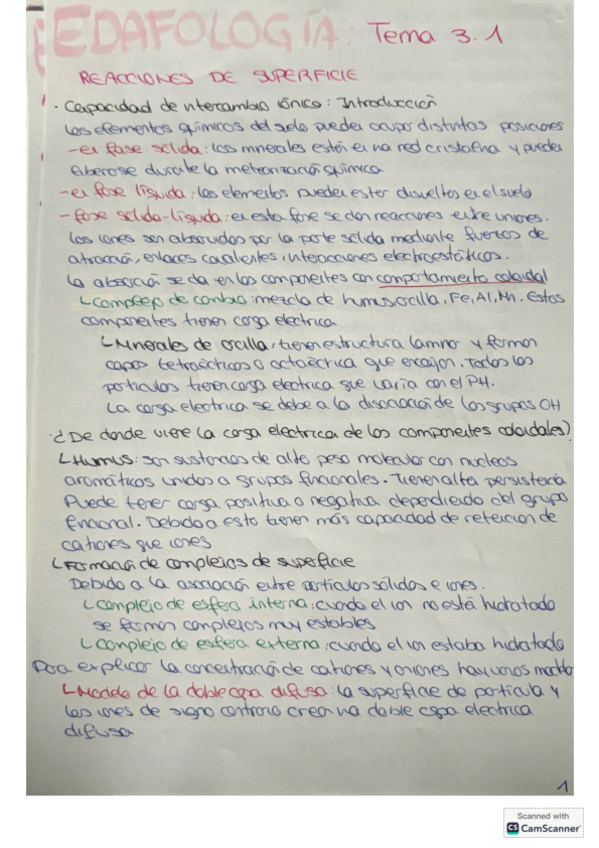 EDAFOLOGÍA Tema 3.1
REACCIONES DE SUPERFICIE
· Capacidad de intercambio iónico: Introducción
Los elementos químicos del suelo pueden ocupar distintas posiciones
- en fase sólida: los minerales están en una red cristalina y pueden
liberarse durante la meteorización química
- en fase líquida: los elementos pueden estar disueltos en el suelo
- fase sólida-líquida: en esta fase se dan reacciones entre uniones.
Los iones son absorvidos por la parte sólida mediante fuerzas de
atracción, enlaces covalentes interacciones electroestáticos.
La absorción se da en los componentes con comportamiento coloidal
↳ Complejo de cambio: mezcla de humus, arcilla, Fe, Al, Mn. Estos
componentes tienen carga electrica
↳ Minerales de arcilla: tienen estructura laminar y forman
capas tetraédricas o octaédrica que encajan. Todos las
particulas tienen carga electrica que varía con el PH.
La carga electrica se debe a la disociación de los grupos OH
· ¿De donde viene la carga electrica de los componentes coloidales?
↳ Humus: son sustancias de alto peso molecular con nucleos
aromáticos unidos a grupos funcionales. Tienen alta persistencia
Puede tener carga positiva o negativa dependiendo del grupo
funcional. Debido a esto tienen más capacidad de retencion de
cationes que iones
↳ Formación de complejos de superficie
Debido a la asociación entre partículas sólidas e iones.
↳ Complejo de esfera interna: cuando el ion no está hidratado
se forman complejos muy estables
↳ Complejo de esfera externa: cuando el ion estaba hidratado
Para explicar la concentración de cationes y aniones hay varios modelos
↳ Modelo de la doble capa difusa: la superficie de partícula y
los iones de signo contrario crean una doble capa electrica
difusa
1
Scanned with
CS CamScanner